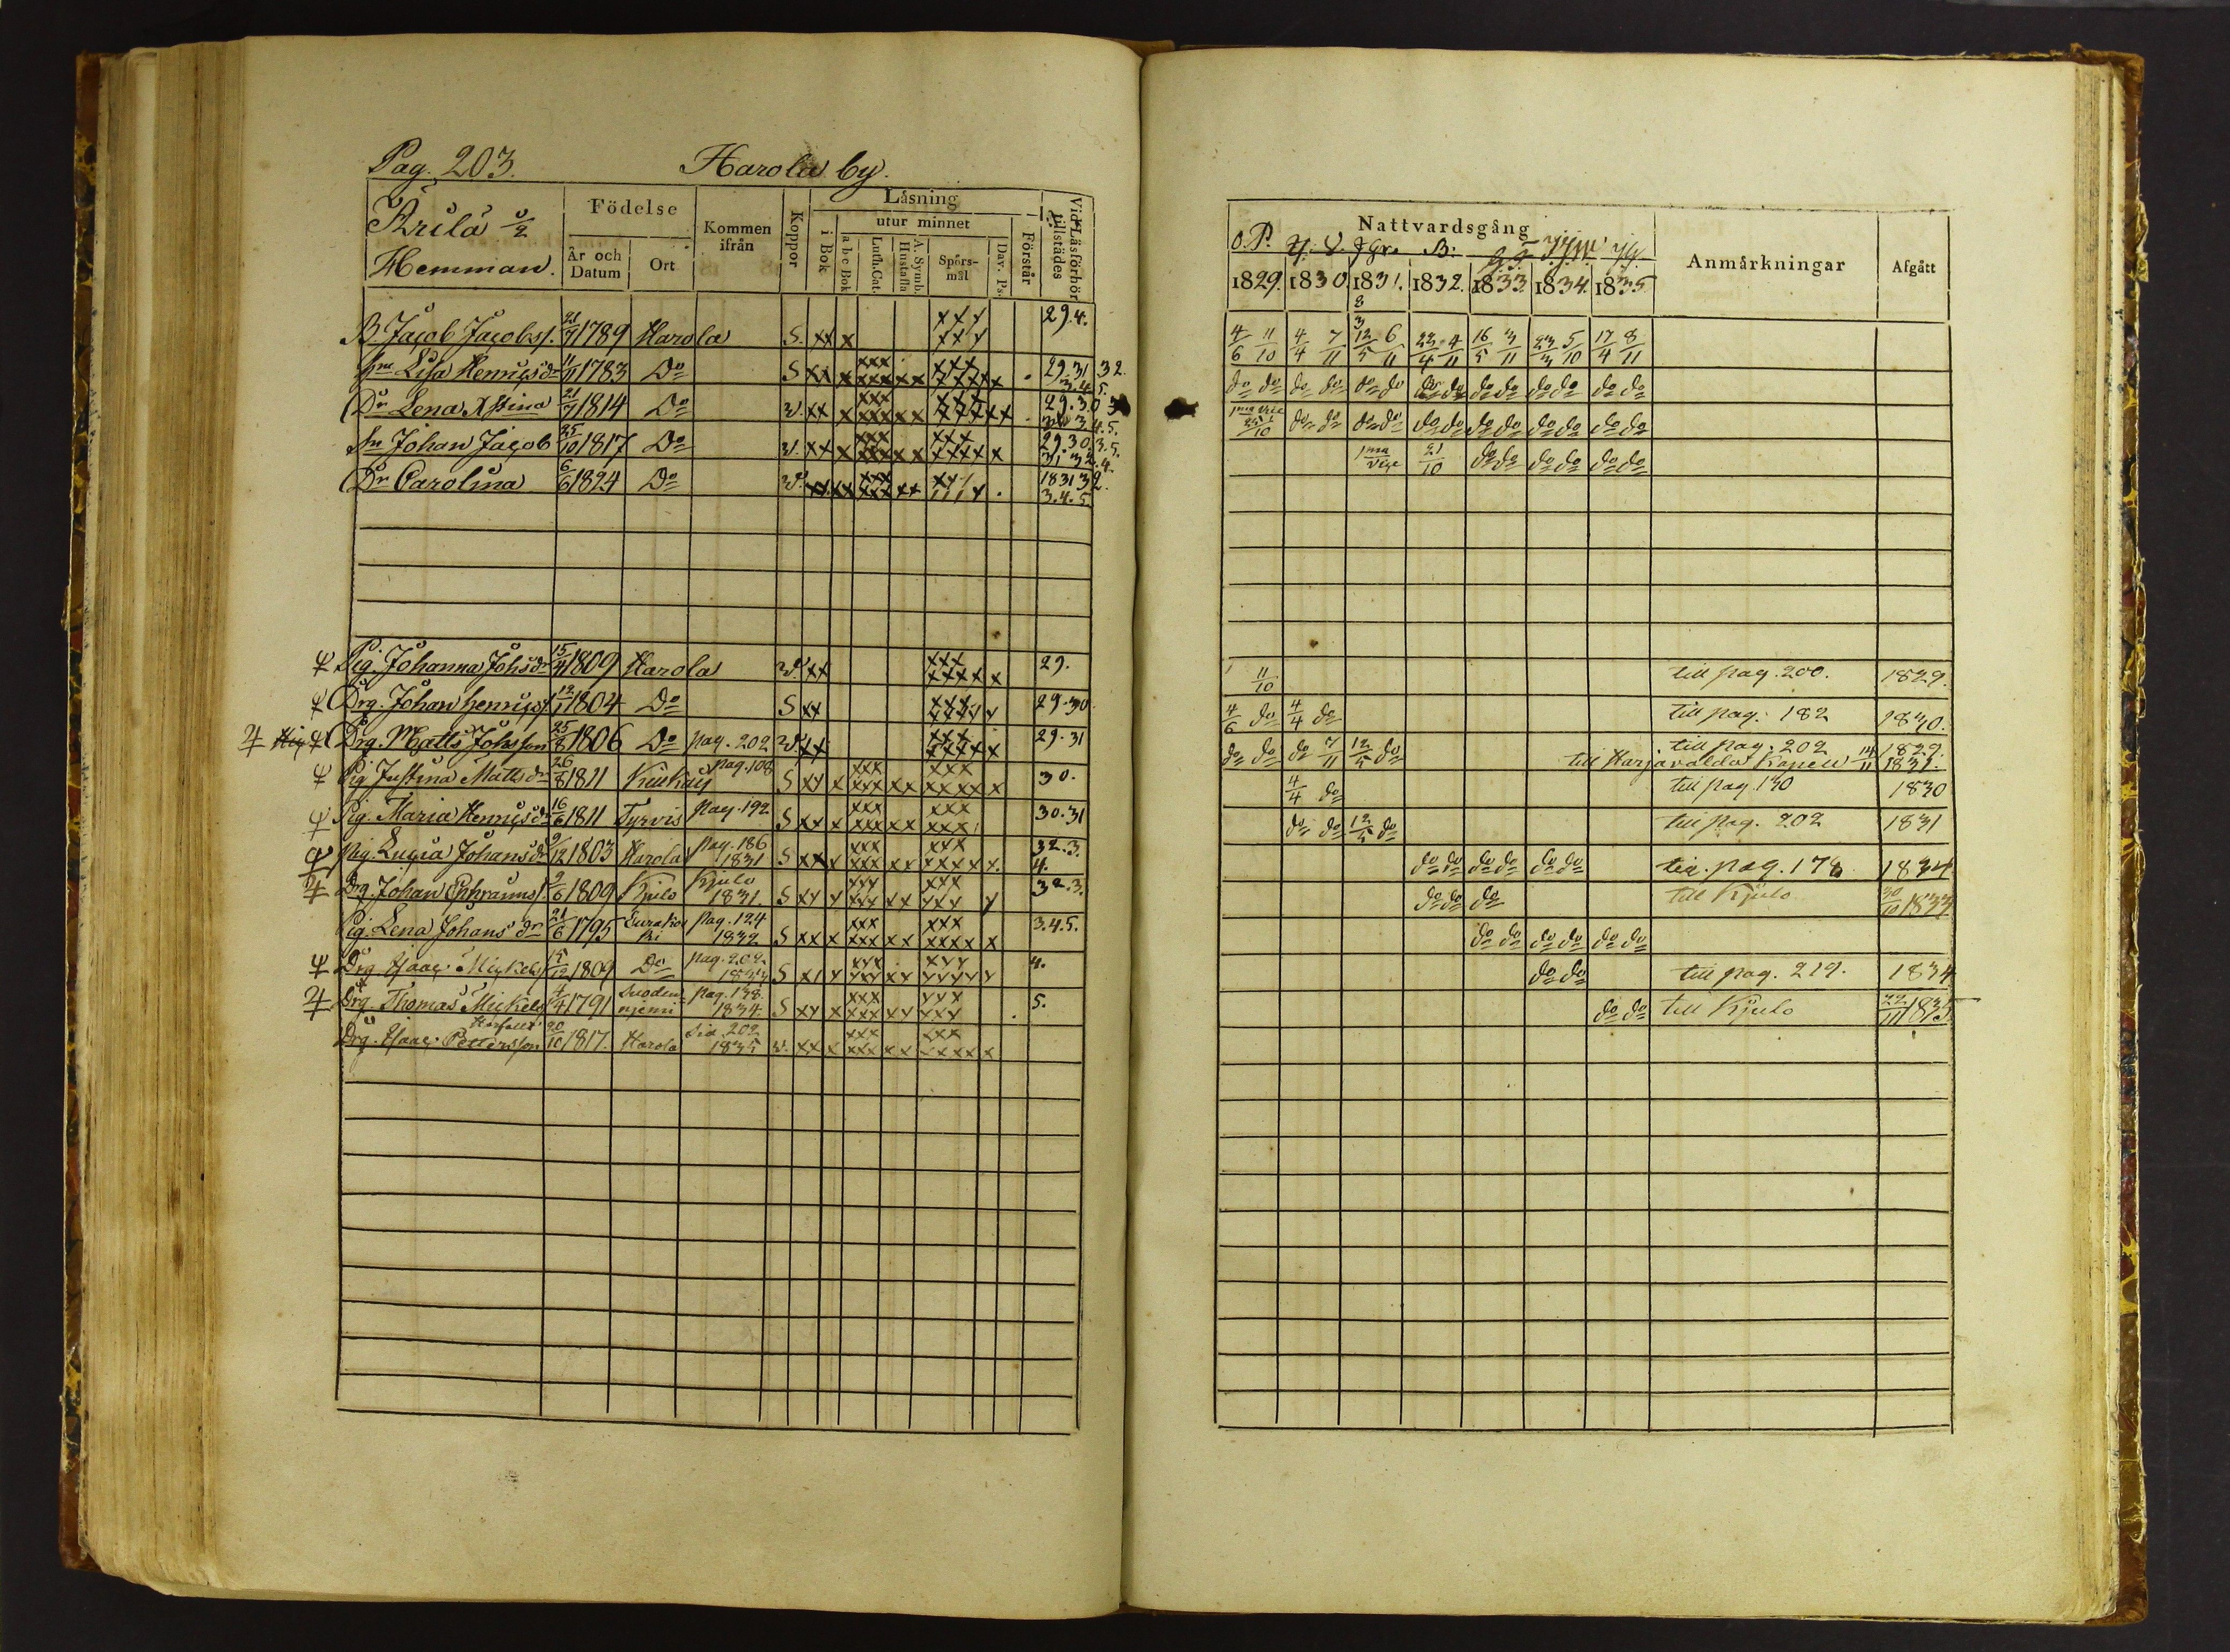 Pag. 203. Harola by.
Arila ½
Hemman.
Födelse
År och Datum
Ort
Kommen ifrån
Koppor
Läsning
i Bok
utur minnet
a b c Bok
Luth. Cat.
A. Symb. Hustafla
Spörsmål
Dav. Ps.
Förstår
Vid Läsförhör tillstädes
B. Jacob Jacobss. 21/7 1789 Harola S. xx x xxx xxx 29.4.
Hu Lisa Henricsdr 11/11 1783 Do S xx x xxx xxx xx xxx xxxx x 29.31 32. 3.4.5.
Dr Lena Xstina 21/7 1814 Do v. xx x xxx xxx xx 29.30 3.4.5.
Sn Johan Jacob 25/10 1817 Do v. xx x xxx xxx xx 29.30.3.5. 31 32.4
Dr Carolina 6/6 1824 Do v. xx xx xxx xxx xx 1831 32. 3.4.5.
Pig. Johanna Johsdr 15/4 1809 Harola v. xx xxx xxxx x 29.
Drg. Johan Henricss. 12/1 1804 Do S xx xxx xxxx x 29.30
Drg. Matts Johsson 25/8 1806 Do pag. 202 v. xx xxx xxxx x 29.31
Pig Justina Mattsdr 26/8 1811 Kiukais pag. 108 S xx x xxx xxx xx xxx xxxx x 30.
Pig. Maria Henricsdr 16/6 1811 Tyrvis pag. 192 S xx x xxx xxx xx xxx xxx 30.31
Pig. Lucia Johansdr 9/12 1803 Harola pag. 186 1831 S xx x xxx xxx xx xxx xxxx x. 32.3. 4.
Drg. Johan Ephraimss. 2/6 1809 Kjulo Kjulo 1831. S xx x xxx xxx xx xxx xxx x 32.3.
Pig. Lena Johansdr 21/6 1795 Eurakoski pag. 124 1832 S xx x xxx xxx xx xxx xxxx x 3.4.5.
Drg Isaac Mickels. 15/12 1809 Do pag. 202 1833 S xx x xxx xxx xx xxx xxxx x 4.
Drg Thomas Mickels. 4/4 1791 pag. 138. 1834. S xx x xxx xxx xx xxx xxx 5.
Drg. Isaac Pettersson 20/10 1817. Harola Sid. 202 1835 v. xx x xxx xxx xx xxx xxxx x
Nattvardsgång
Anmärkningar
Afgått
O.P.
B:
1829. 1830. 1831. 1832. 1833. 1834. 1835
4/6 11/10 4/4 7/11 12/5 6/11 22/4 4/11 16/5 3/11 23/3 5/10 17/4 8/11
do do do do do do do do do do do do do do
1ma Vice 25/10 do do do do do do do do do do do do
1ma Vice 21/10 do do do do do do
11/10 till pag. 200. 1829.
4/6 do 4/4 do till pag. 182 1830.
do do do 7/11 12/5 do till pag. 202 1829.
till Harjavalda Kapell 14/11 1831.
4/4 do till pag. 130 1830
do do 12/5 do till pag. 202 1831
do do do do do do till pag. 178 1834
do do do till Kjulo 30/10 1833
do do do do do do
do do till pag. 219. 1834
do do till Kjulo 22/11 1835